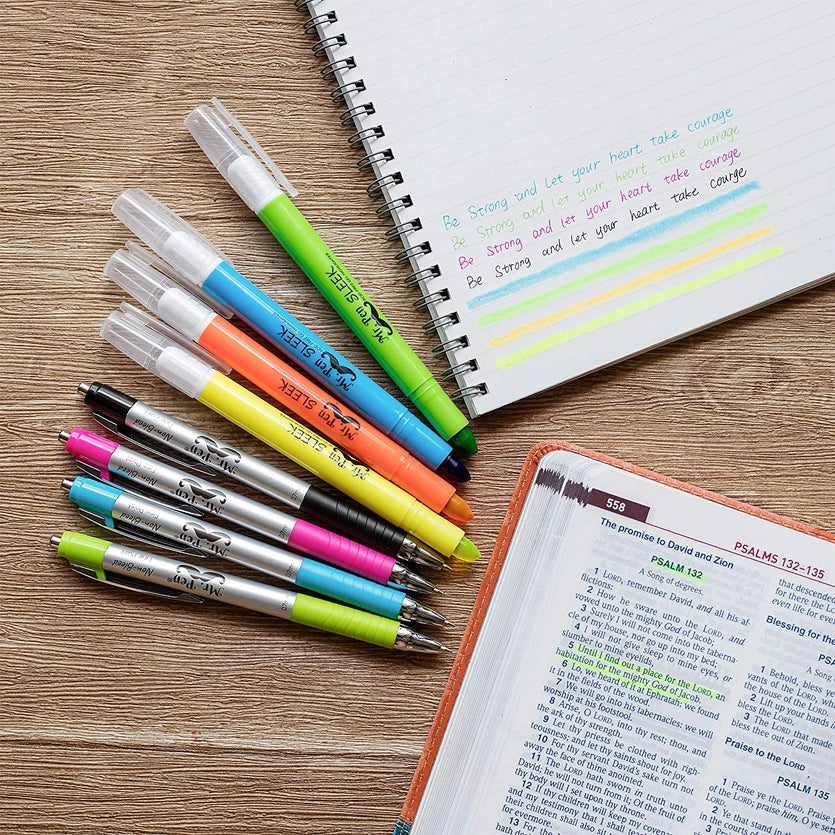 Be Strong and let your heart take courage
Be Strong and let your heart take courage
Be Strong and let your heart take courage
Be Strong and let your heart take courge
Mr. Pen SLEEK
Mr. Pen SLEEK
Mr. Pen SLEEK
Mr. Pen SLEEK
Mr. Pen Non-Bleed
Mr. Pen Non-Bleed
Mr. Pen Non-Bleed
Mr. Pen® Non-Bleed
558
PSALMS 132–135
The promise to David and Zion
PSALM 132
A Song of degrees.
1 LORD, remember David, and all his af-
flictions:
2 How he sware unto the LORD, and
vowed unto the mighty God of Jacob;
3 Surely I will not come into the taberna-
cle of my house, nor go up into my bed;
4 I will not give sleep to mine eyes, or
slumber to mine eyelids,
5 Until I find out a place for the LORD, an
habitation for the mighty God of Jacob.
6 Lo, we heard of it at Ephratah: we found
it in the fields of the wood.
7 We will go into his tabernacles: we will
worship at his footstool.
8 Arise, O LORD, into thy rest; thou, and
the ark of thy strength.
9 Let thy priests be clothed with right-
teousness; and let thy saints shout for joy.
10 For thy servant David's sake turn not
away the face of thine anointed.
11 The LORD hath sworn in truth unto
David; he will not turn from it; Of the fruit of
thy body will I set upon thy throne.
12 If thy children will keep my covenant
and my testimony that I shall
their children shall also
13 For the
hath
that descended
for there the
even life for ever
Blessing for the
A Song
1 Behold, bless ye
vants of the LORD,
the house of the LORD
2 Lift up your hands
bless the LORD.
3 The LORD that made
bless thee out of Zion.
Praise to the LORD
PSALM 135
1 Praise ye the LORD. Praise
of the LORD; praise him, O ye
2 Ye that stand in